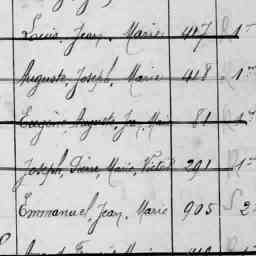 Louis, Jean, Marie 417 1
Auguste, Joseph, Marie 418 1
Eugène, Auguste, Jn, Marie 81 1
Joseph, Pierre, Marie, Victor 291 1
Emmanuel, Jean, Marie 905 S 2